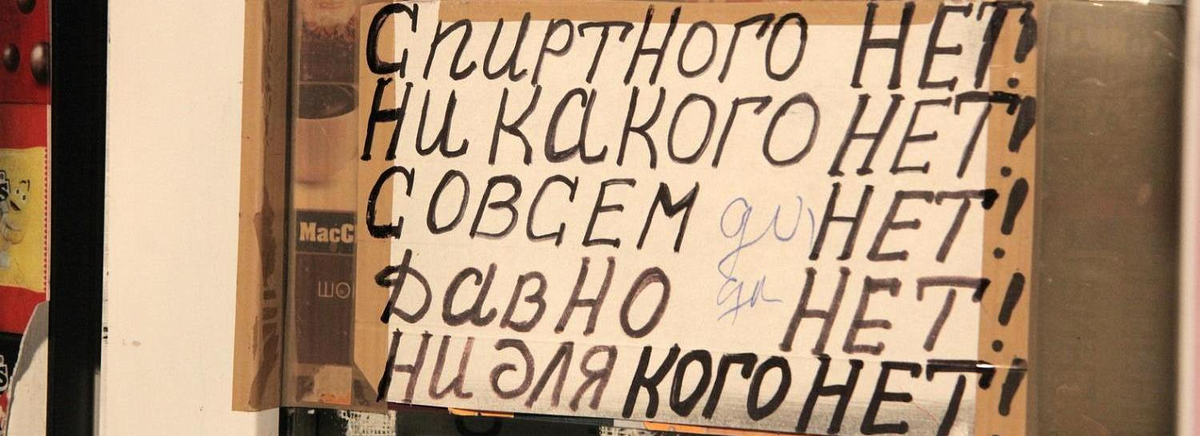 Спиртного НЕТ!
Никакого НЕТ!
СОВСЕМ НЕТ!
ДавНО НЕТ!
НИ для КОГО НЕТ!
MacC
ШО